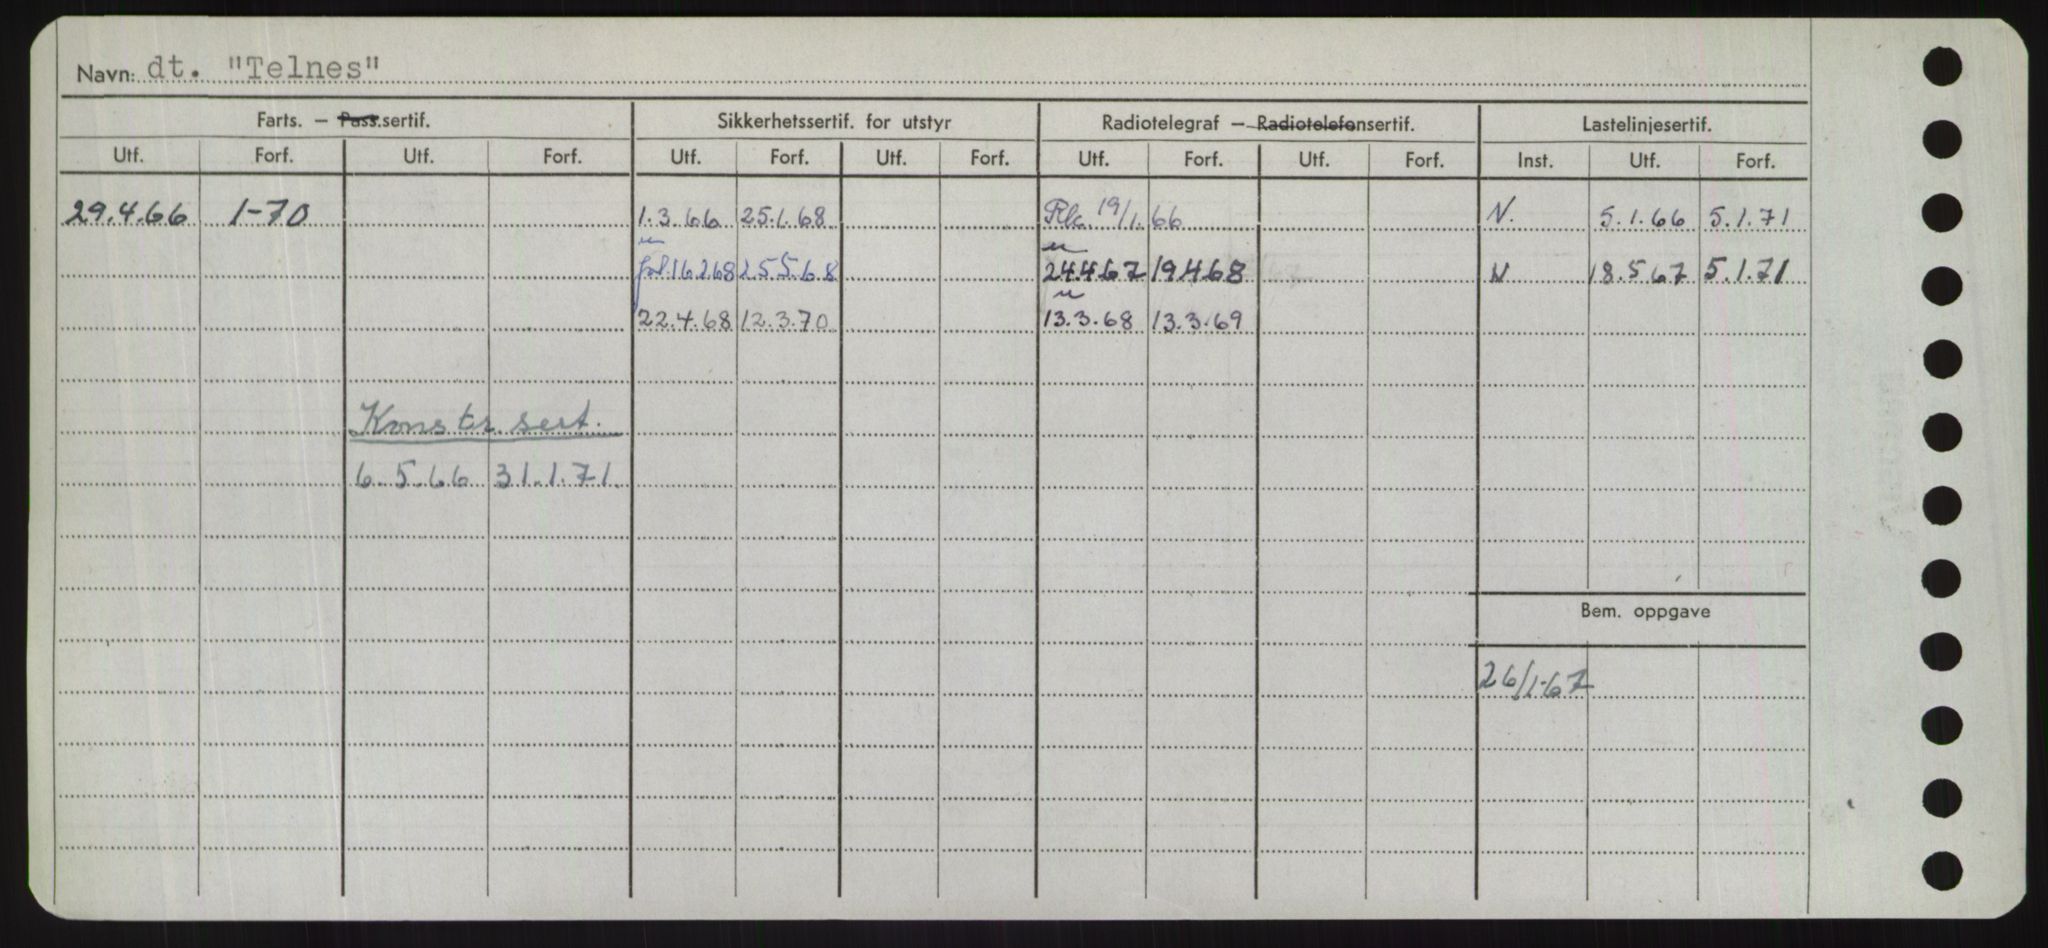 Navn: dt. "Telnes"
Farts. — Pass.sertif. Sikkerhetssertif. for utstyr Radiotelegraf — Radiotelefonsertif. Lastelinjesertif.
Utf. Forf. Utf. Forf. Utf. Forf. Utf. Forf. Utf. Forf. Utf. Forf. Inst. Utf. Forf.
29.4.66 1-70 1.3.66 25.1.68 19/1.66 N. 5.1.66 5.1.71
16.2.68 25.5.68 24.4.67 19.4.68 N 18.5.67 5.1.71
22.4.68 12.3.70 13.3.68 13.3.69
Konstr. sert.
6.5.66 31.1.71.
Bem. oppgave
26/1-67